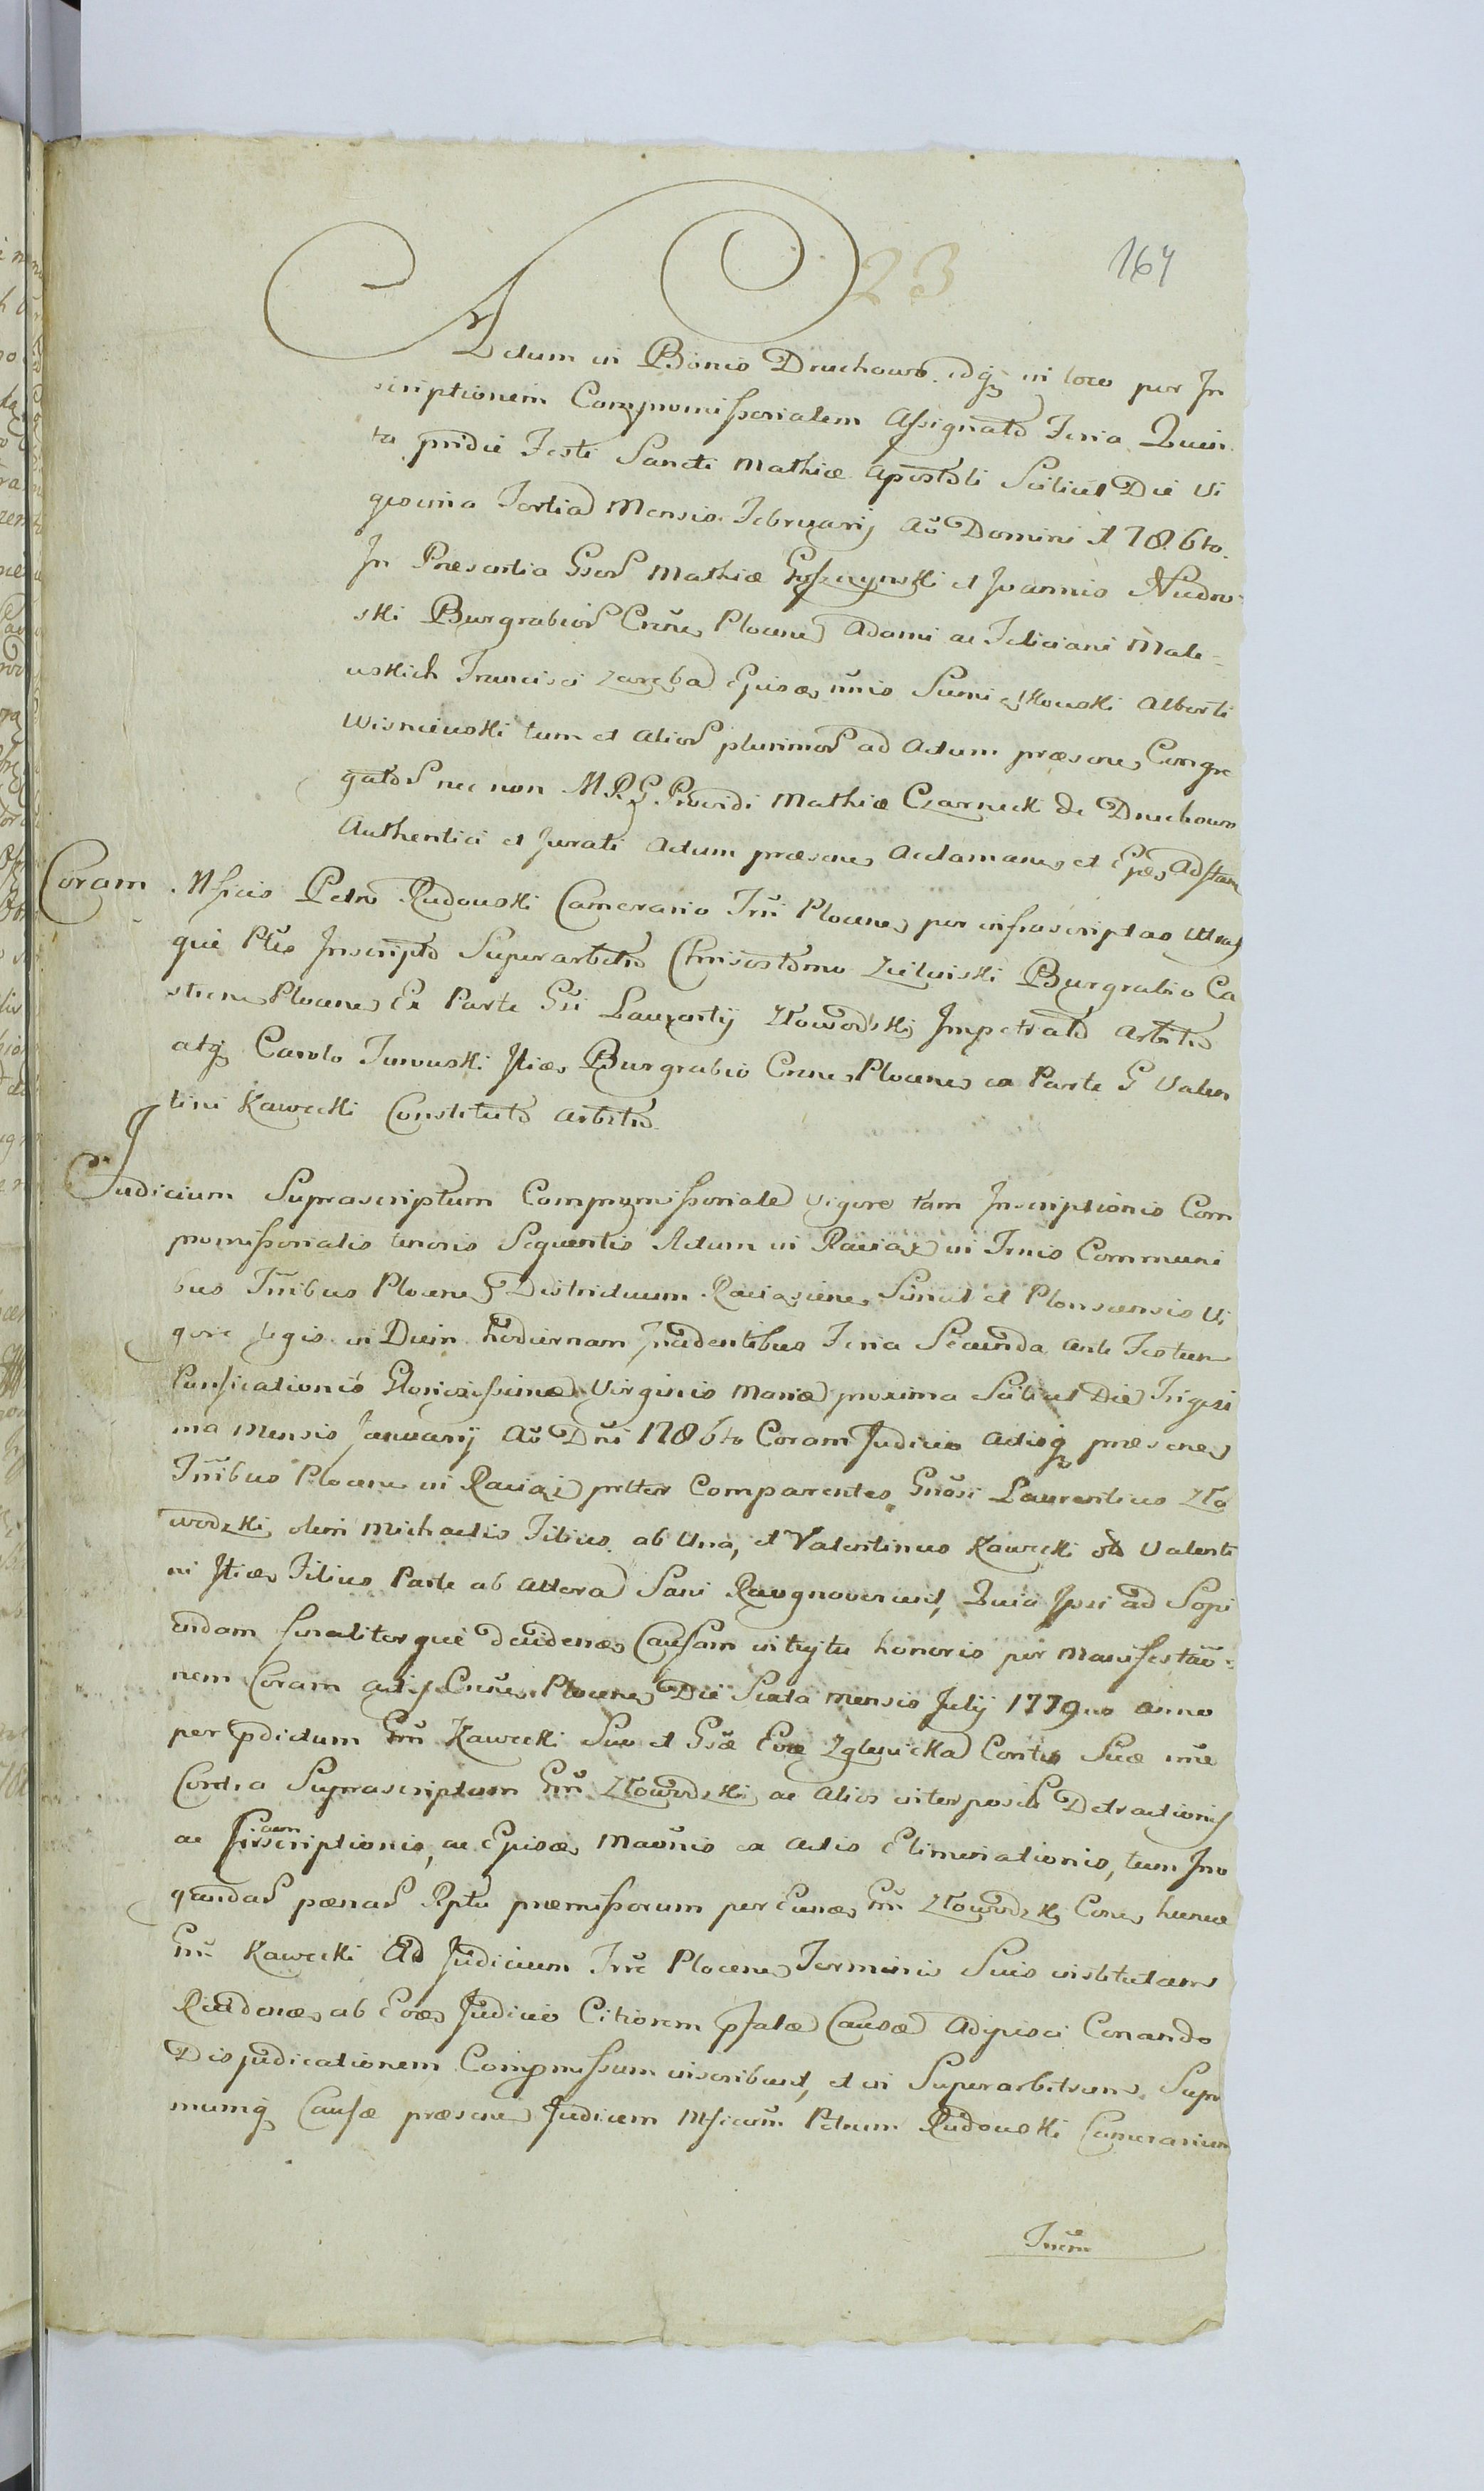 23
164
Actum in Bonis Druchowo idq in loco per In
scriptionem Compromissorialem Assignato Feria Quin
ta pridie Festi Sancti Mathiæ Apostoli Scilicet Die Vi
gesima Tertia Mensis Februarij Aõ Domini 1786to.
In Præsentia Gsor Mathiæ et Joannis
ski Burgrabior Crẽn Plocen Adami ac Feliciani Male=
uskich Francisci Zaręba Alberti
Wisniewski tum et Alior plurimor ad Actum præsens Congre
gator nec non M.R.G. Providi Mathiæ Czarnecki de Druchowo
Authentici et Jurati Actum præsens Acclamans et Adstan
Coram Mficis Petro Rudowski Camerario Trri Plocens per infrascriptas Utras
que Ptes Inscripto Superarbitro Chrisostomo Zielinski Burgrabio Ca
strens Plocens Ex Parte Gsi Laurentij Zławodzki Impetrato Arbitro
atq Carolo Turowski Itidem Burgrabio Crens Plocens ex Parte G Valen
tini Kawecki Constituto Arbitro.
Judicium Suprascriptum Compromissoriale vigore tam Inscriptionis Com
promissorialis tenoris Sequentis Actum in Raciąż in Trris Communi
bus Trribus Plocens Districtuum Raciążiens Simul et Plonscensis Vi
gore legis in Diem hodiernam Incidentibus Feria Secunda ante Festum
Purificationis Gloriosissimæ Virginis Mariæ proxima Scilicet Die Trigesi
ma Mensis Januarij Aõ Dni 1786to Coram Judicio Actisq præsens
Trribus Plocens in Raciąż prtter Comparentes Gnosi Laurentius Zła
wodzki olim Michaelis Filius ab Una, et Valentinus Kawecki olim Valenti
ni Itidem Filius Parte ab Altera Sani Recognoverunt, Quia Ipsi ad Sopi
endam finaliterque decidendam Causam intuytu honoris per Manifestaõ=
nem Coram actis Crẽns Plocens Die Sexta Mensis Julij 1779no Anno
per pdictum Gnm Kawecki Suo et Gsæ Evæ Zglenicka Contis Suæ nne
Contra Suprascriptum Gnm Zławodzki ac Alios interpositi Detractionis
ac scriptionis, ac Manis ex Actis Eliminationis, tum Irro
gandar pænar Rptu præmissorum per Eundem Gnm Zławodzki Cone hunce
Gnm Kawecki Ad Judicium Trre Plocens Terminis Suis institutam
ab Eodem Judicio Citiorem pfatæ Causæ Adipisci Conando
Disjudicationem Compmissum inscribunt, et in Superarbitrum Supre
mumq Causæ præsens Judicem Mficum Petrum Rudowski Camerarium
Trrem